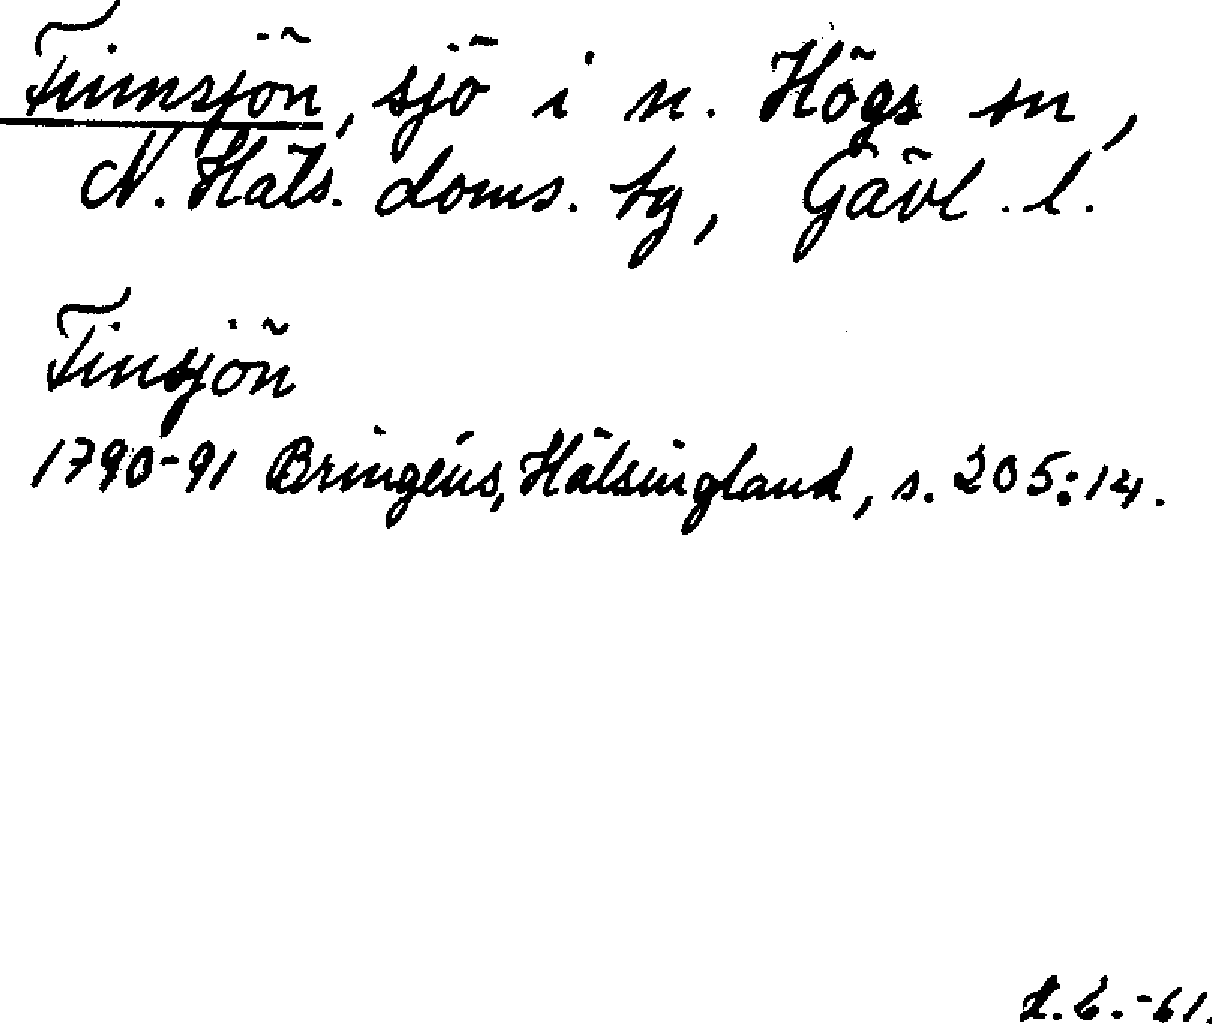 Finnsjön, sjö i n. Högs sn,
N. Häls. doms. tg, Gävl. l.
Finsjön
1790-91 Bringéus, Hälsingland, s. 205:14.
-61.